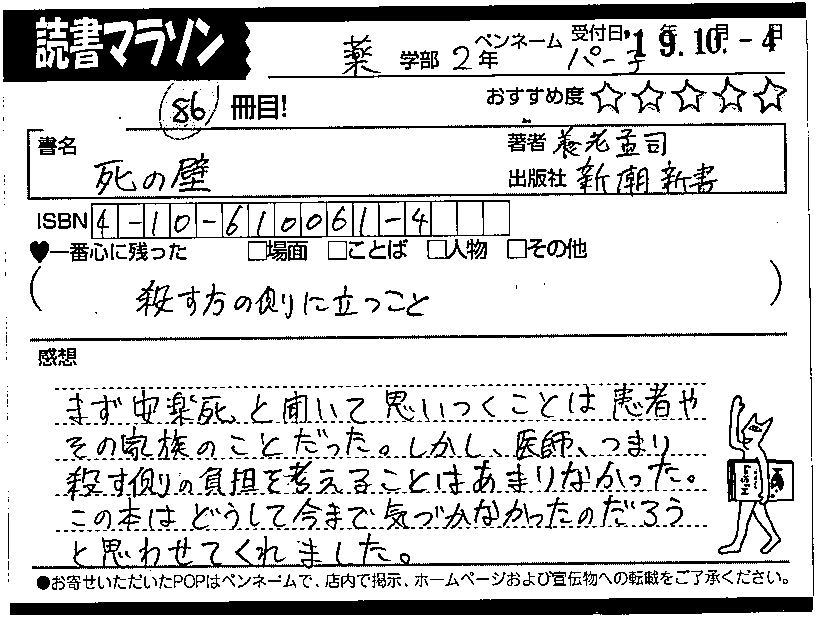 読書マラソン
薬 学部 2年 ペンネーム パー子 受付日 '19.10.-4
年 月 日
86 冊目! おすすめ度 ☆☆☆☆☆
書名 死の壁
著者 養老孟司
出版社 新潮新書
ISBN 4-10-610061-4
♥一番心に残った □場面 □ことば □人物 □その他
(殺す方の側に立つこと)
感想
まず安楽死、と聞いて思いつくことは患者や
その家族のことだった。しかし、医師、つまり
殺す側の負担を考えることはあまりなかった。
この本はどうして今まで気づかなかったのだろう
と思わせてくれました。
●お寄せいただいたPOPはペンネームで、店内で掲示、ホームページおよび宣伝物への転載をご了承ください。